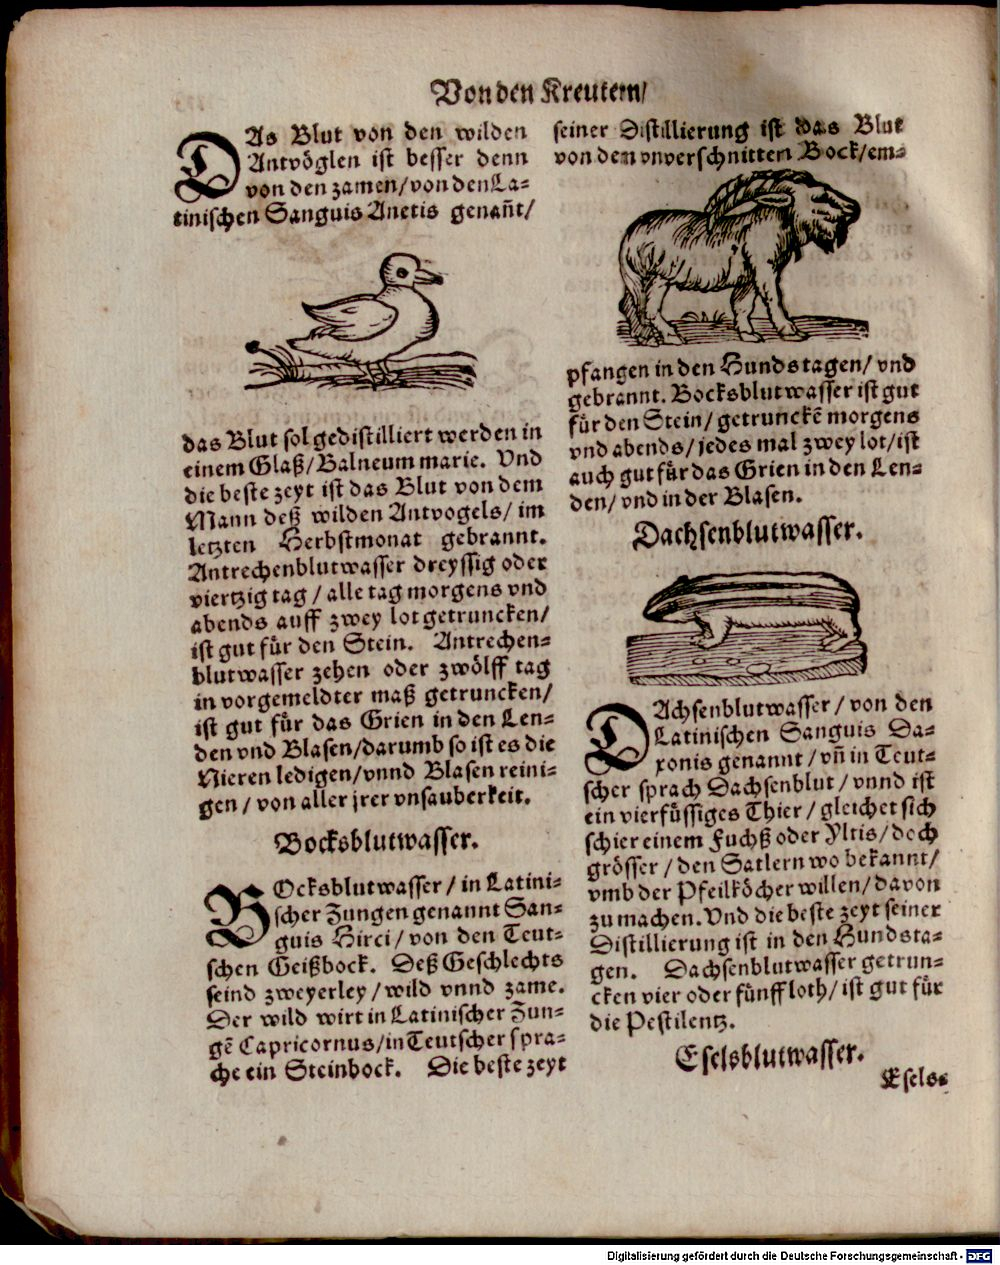 Von den Kreutern/
DAs Blut von den wilden
Antvöglen ist besser denn
von den zamen/von den La-
tinischen Sanguis Anetis genañt/
das Blut sol gedistilliert werden in
einem Glaß/Balneum marie. Vnd
die beste zeyt ist das Blut von dem
Mann deß wilden Antvogels/ im
letzten Herbstmonat gebrannt.
Antrechenblutwasser dreyssig oder
viertzig tag / alle tag morgens vnd
abends auff zwey lot getruncken/
ist gut für den Stein. Antrechen-
blutwasser zehen oder zwölff tag
in vorgemeldter maß getruncken/
ist gut für das Grien in den Len-
den vnd Blasen/darumb so ist es die
Nieren ledigen/vnnd Blasen reini-
gen / von aller jrer vnsauberkeit.
Bocksblutwasser.
BOcksblutwasser / in Latini-
scher Zungen genannt San-
guis Hirci/ von den Teut-
schen Geißbock. Deß Geschlechts
seind zweyerley / wild vnnd zame.
Der wild wirt in Latinischer Zun-
gē Capricornus/in Teutscher spra-
che ein Steinbock. Die beste zeyt
seiner Distillierung ist das Blut
von dem vnverschnitten Bock/em-
pfangen in den Hundstagen/ vnd
gebrannt. Bocksblutwasser ist gut
für den Stein / getrunckē morgens
vnd abends/ jedes mal zwey lot/ist
auch gut für das Grien in den Len-
den/ vnd in der Blasen.
Dachsenblutwasser.
DAchsenblutwasser / von den
Latinischen Sanguis Da-
xonis genannt / vñ in Teut-
scher sprach Dachsenblut / vnnd ist
ein vierfüssiges Thier / gleichet sich
schier einem Fuchß oder Yltis/ doch
grösser / den Satlern wo bekannt/
vmb der Pfeilköcher willen/ davon
zu machen. Vnd die beste zeyt seiner
Distillierung ist in den Hundsta-
gen. Dachsenblutwasser getrun-
cken vier oder fünff loth/ ist gut für
die Pestilentz.
Eselsblutwasser.
Esels-
Digitalisierung gefördert durch die Deutsche Forschungsgemeinschaft - DFG